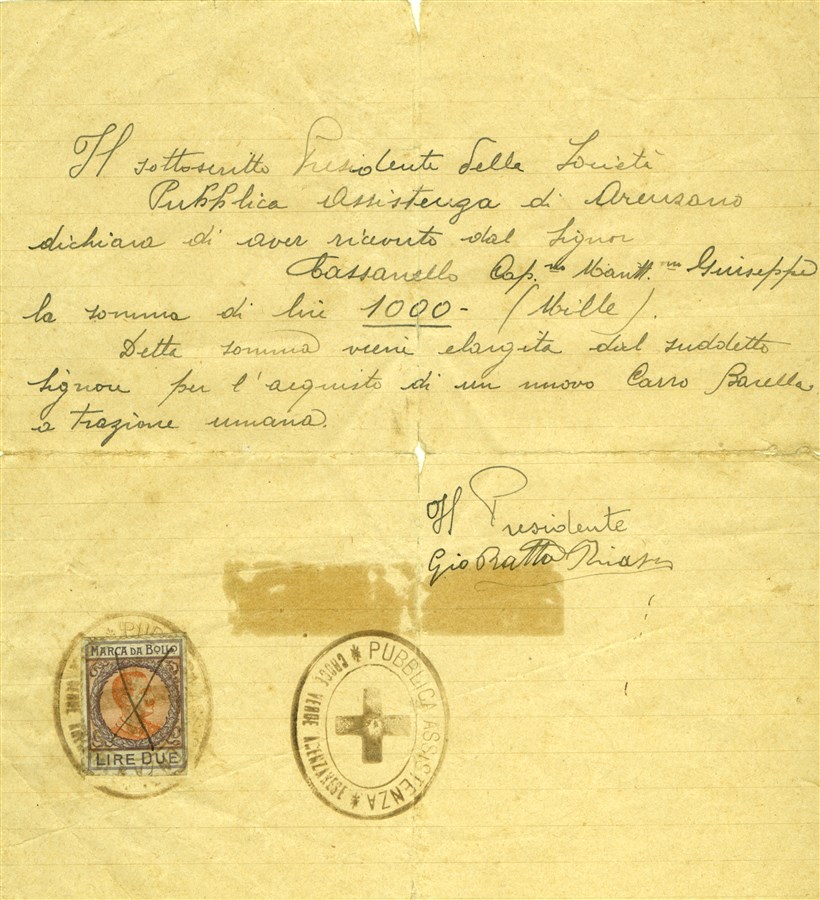 Il sottoscritto Presidente della Società
Pubblica Assistenza di Arenzano
dichiara di aver ricevuto dal Signor
Cassanello Cap.no Maritt.mo Giuseppe
la somma di lire 1000- (Mille).
Detta somma viene elargita dal suddetto
Signore per l'acquisto di un nuovo Carro Barella
a trazione umana.
Il Presidente
Gio Batta
MARCA DA BOLLO
LIRE DUE
PUBBLICA ASSISTENZA
CROCE VERDE ARENZANESE